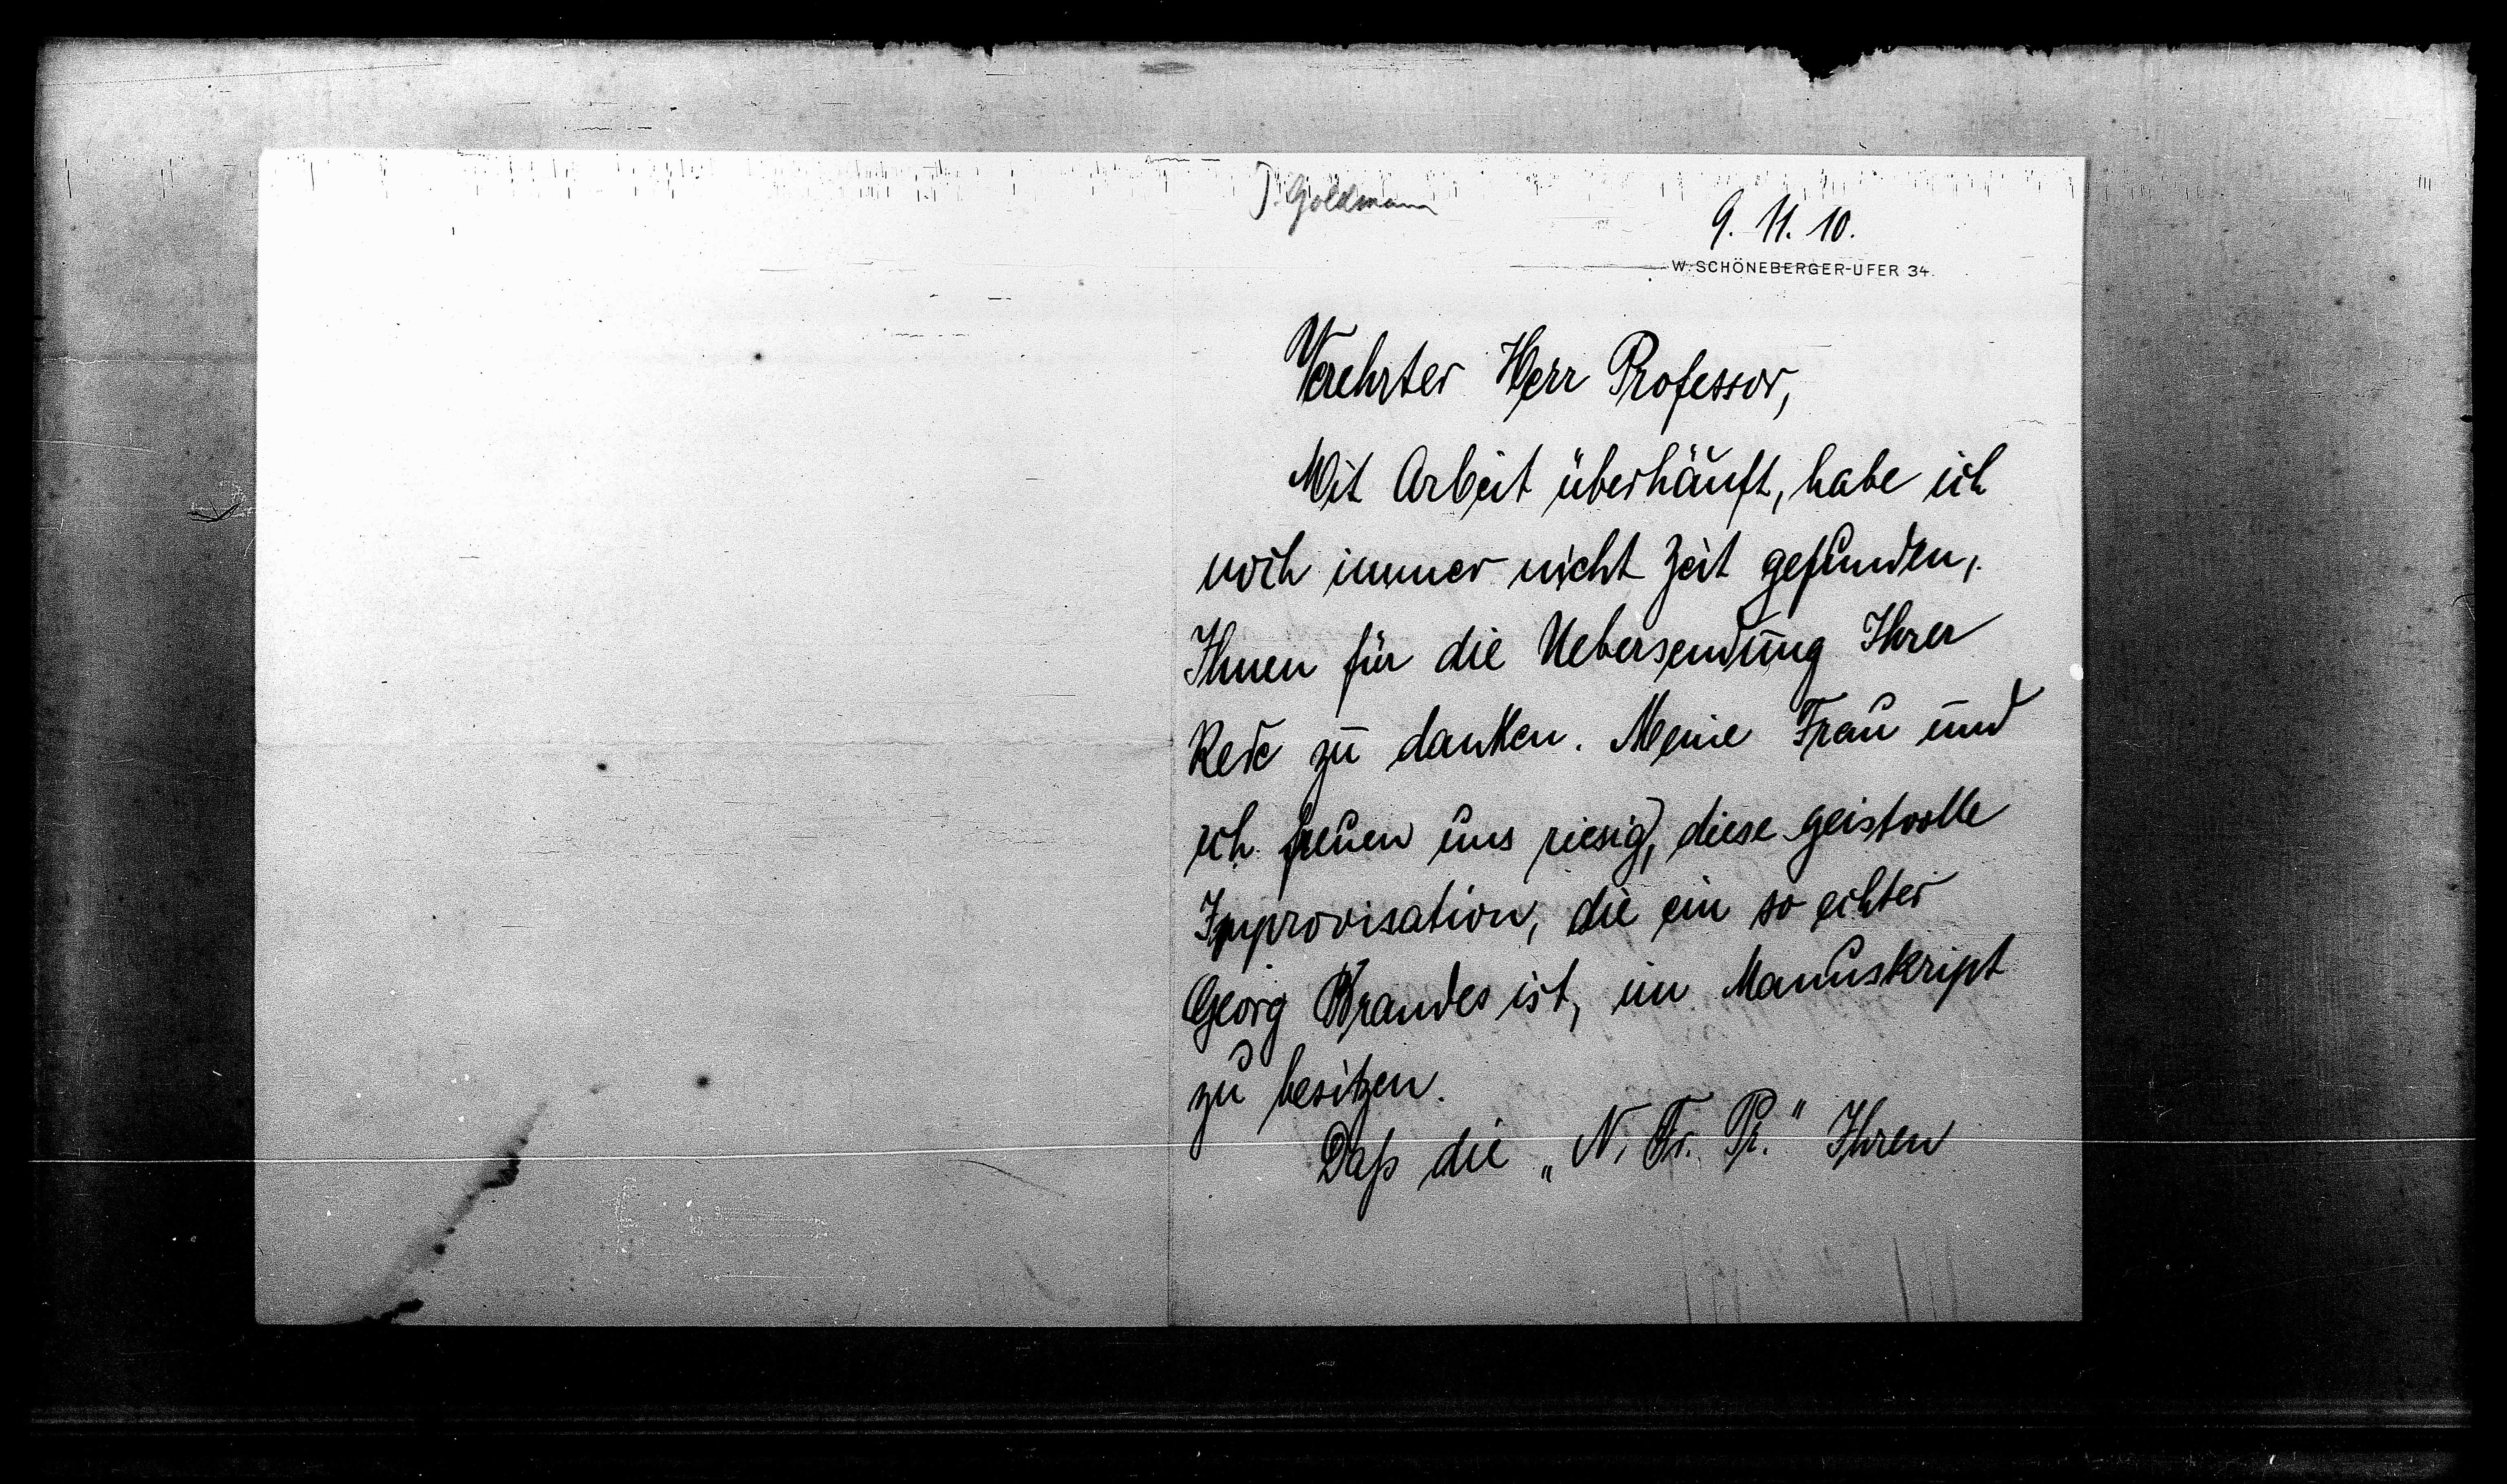 J. Goldmann
9. 11. 10.
W. SCHÖNEBERGER-UFER 34.
Verehrter Herr Professor,
Mit Arbeit überhäuft, habe ich
noch immer nicht Zeit gefunden,
Ihnen für die Uebersendung Ihrer
Rede zu danken. Meine Frau und
ich freuen uns riesig, diese geistvolle
Improvisation, die ein so echter
Georg Brandes ist, im Manuskript
zu besitzen.
Daß die „N. Fr. Pr." Ihren